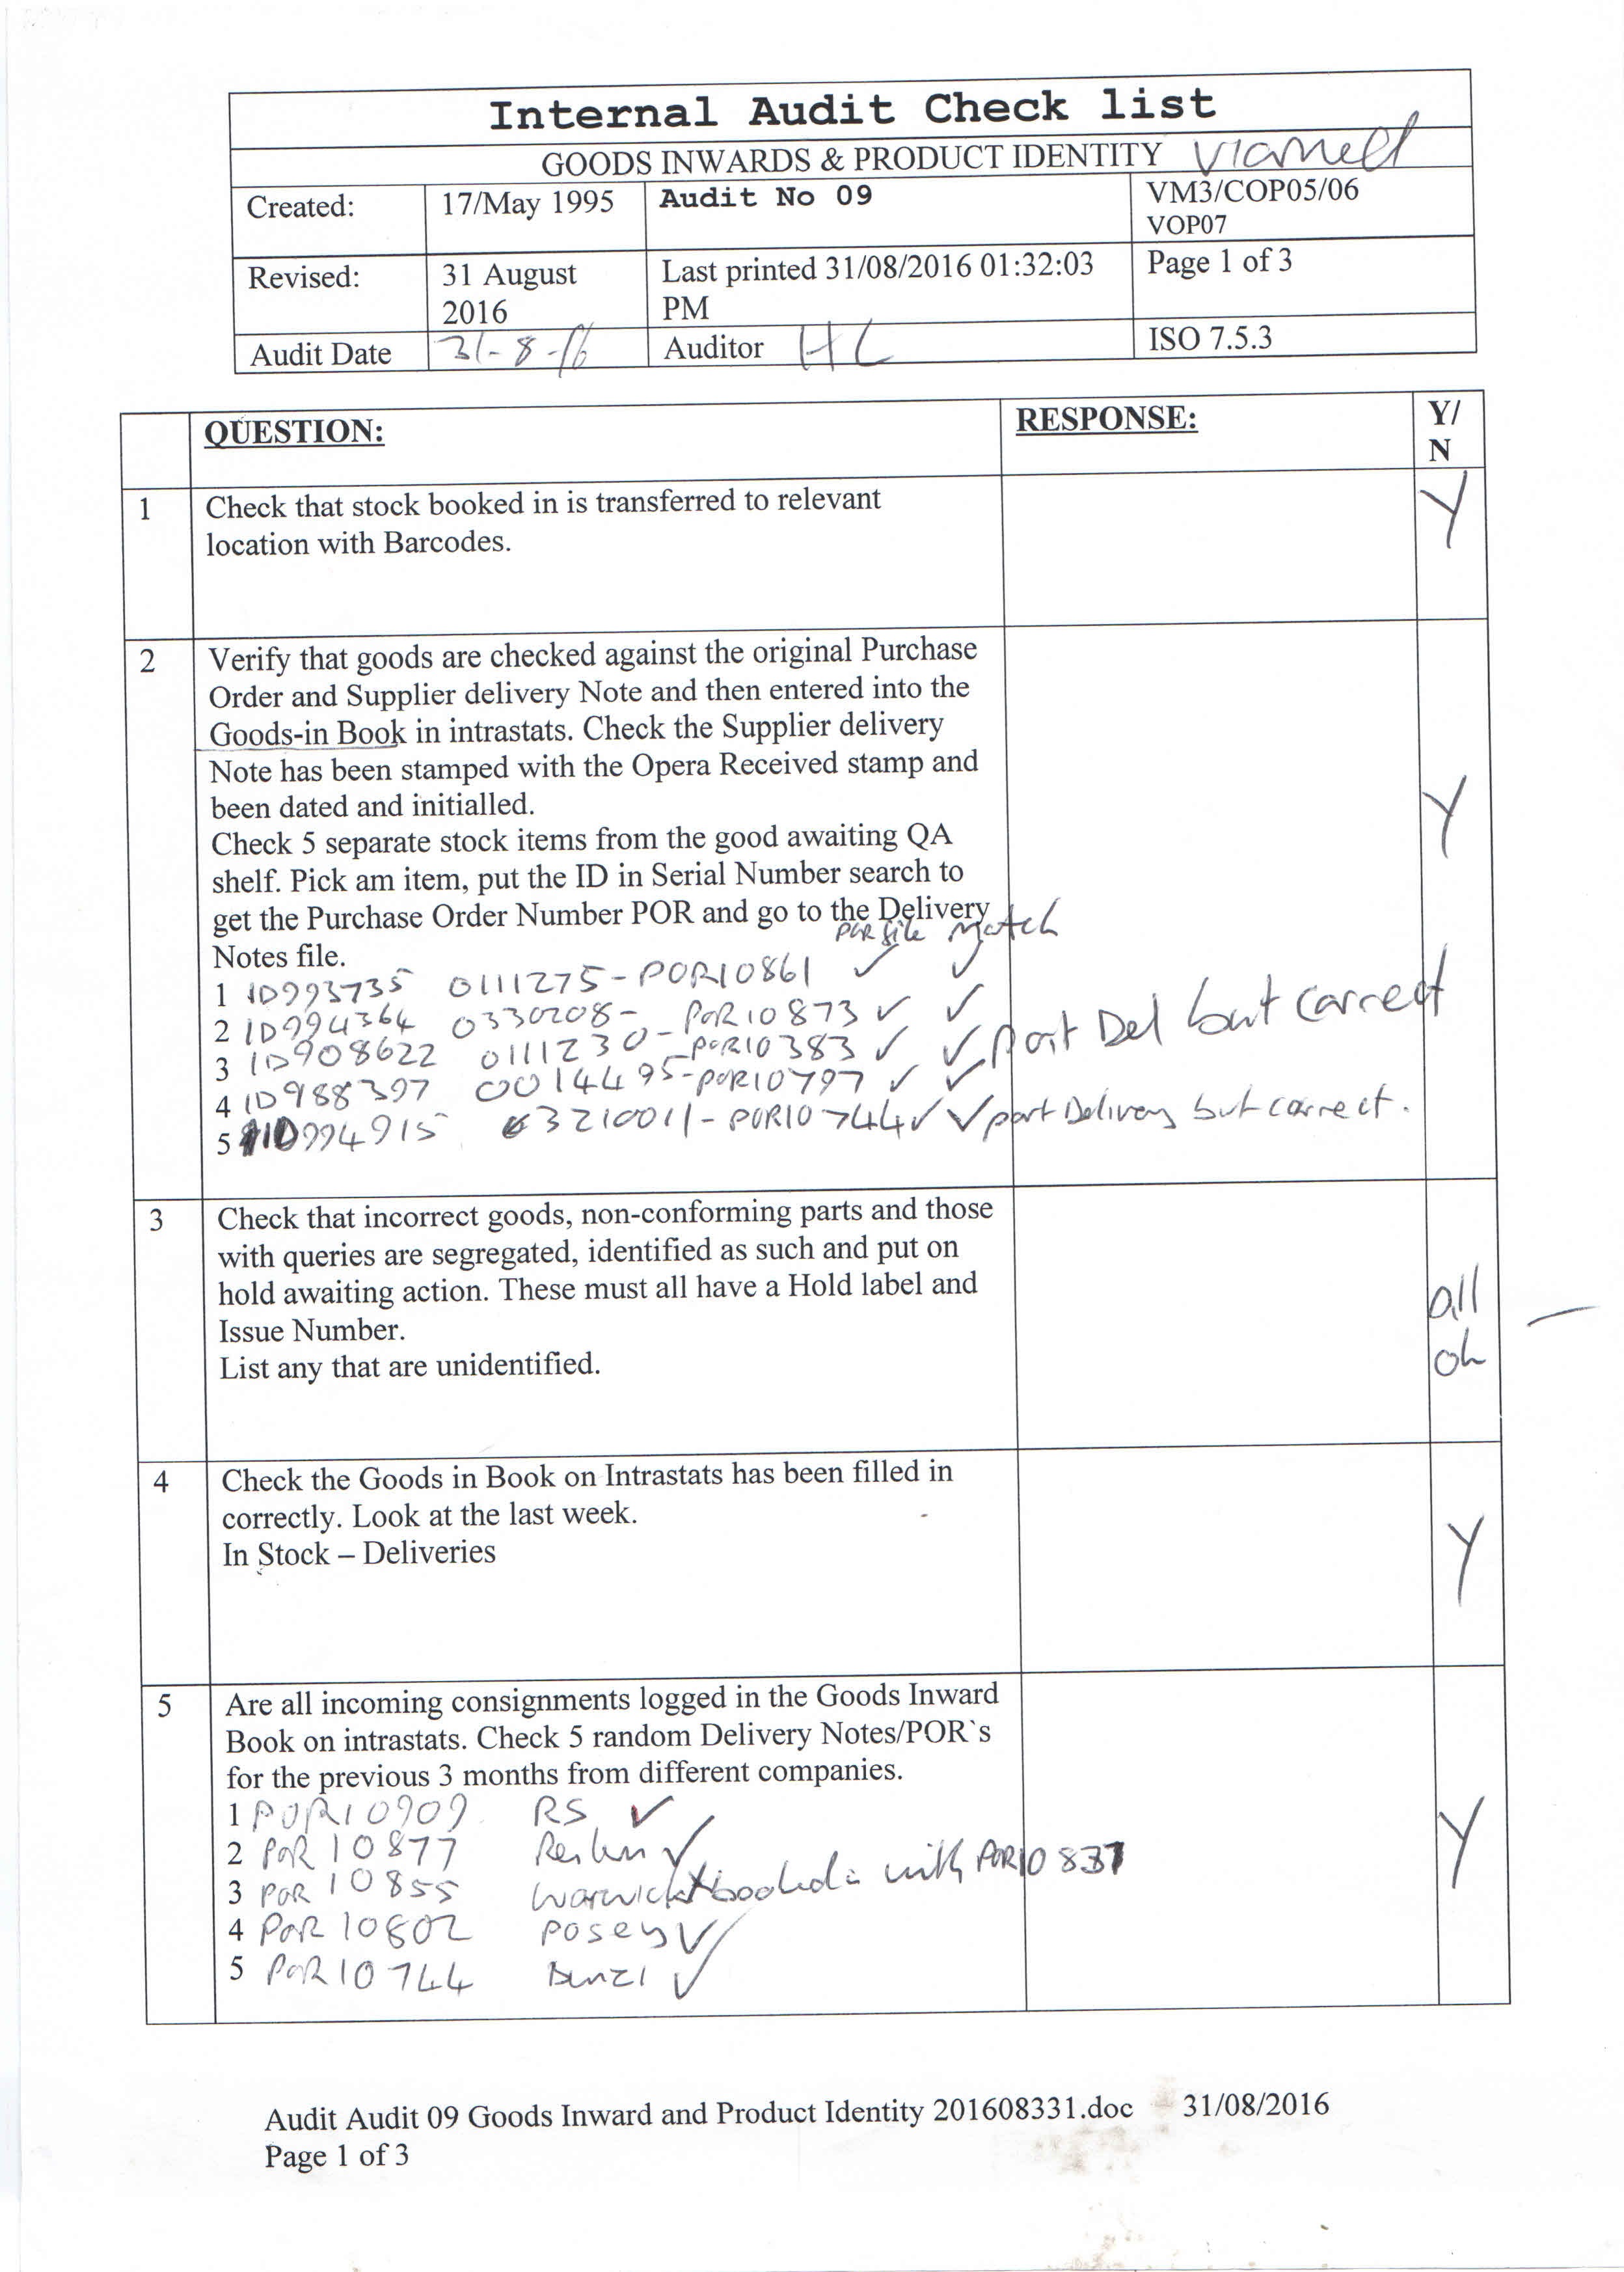 Internal Audit Check list
GOODS INWARDS & PRODUCT IDENTITY Viamed
Created: 17/May 1995 Audit No 09 VM3/COP05/06
VOP07
Revised: 31 August
2016 Last printed 31/08/2016 01:32:03
PM Page 1 of 3
Audit Date 31-8-16 Auditor HL ISO 7.5.3
QUESTION: RESPONSE: Y/
N
1 Check that stock booked in is transferred to relevant
location with Barcodes.
Y
2 Verify that goods are checked against the original Purchase
Order and Supplier delivery Note and then entered into the
Goods-in Book in intrastats. Check the Supplier delivery
Note has been stamped with the Opera Received stamp and
been dated and initialled.
Y
Check 5 separate stock items from the good awaiting QA
shelf. Pick am item, put the ID in Serial Number search to
get the Purchase Order Number POR and go to the Delivery
Notes file.
POR file Match
1 ID993735 0111275 - POR10861 ✓ ✓
2 ID994364 0330208 - POR10873 ✓ ✓
3 ID908622 0111230 - POR10383 ✓ ✓ part Del but correct
4 ID988397 0014495 - POR10797 ✓ ✓
5 ID994915 03210011 - POR10744 ✓ ✓ part Delivery but correct.
3 Check that incorrect goods, non-conforming parts and those
with queries are segregated, identified as such and put on
hold awaiting action. These must all have a Hold label and
Issue Number.
List any that are unidentified.
all
ok
4 Check the Goods in Book on Intrastats has been filled in
correctly. Look at the last week.
In Stock – Deliveries
Y
5 Are all incoming consignments logged in the Goods Inward
Book on intrastats. Check 5 random Delivery Notes/POR`s
for the previous 3 months from different companies.
1 POR10909 RS ✓
2 POR10877 ✓
3 POR10855 Warwick X booked in with POR10837
4 POR10802 Posey ✓
5 POR10744 Bunzl ✓
Y
Audit Audit 09 Goods Inward and Product Identity 201608331.doc 31/08/2016
Page 1 of 3